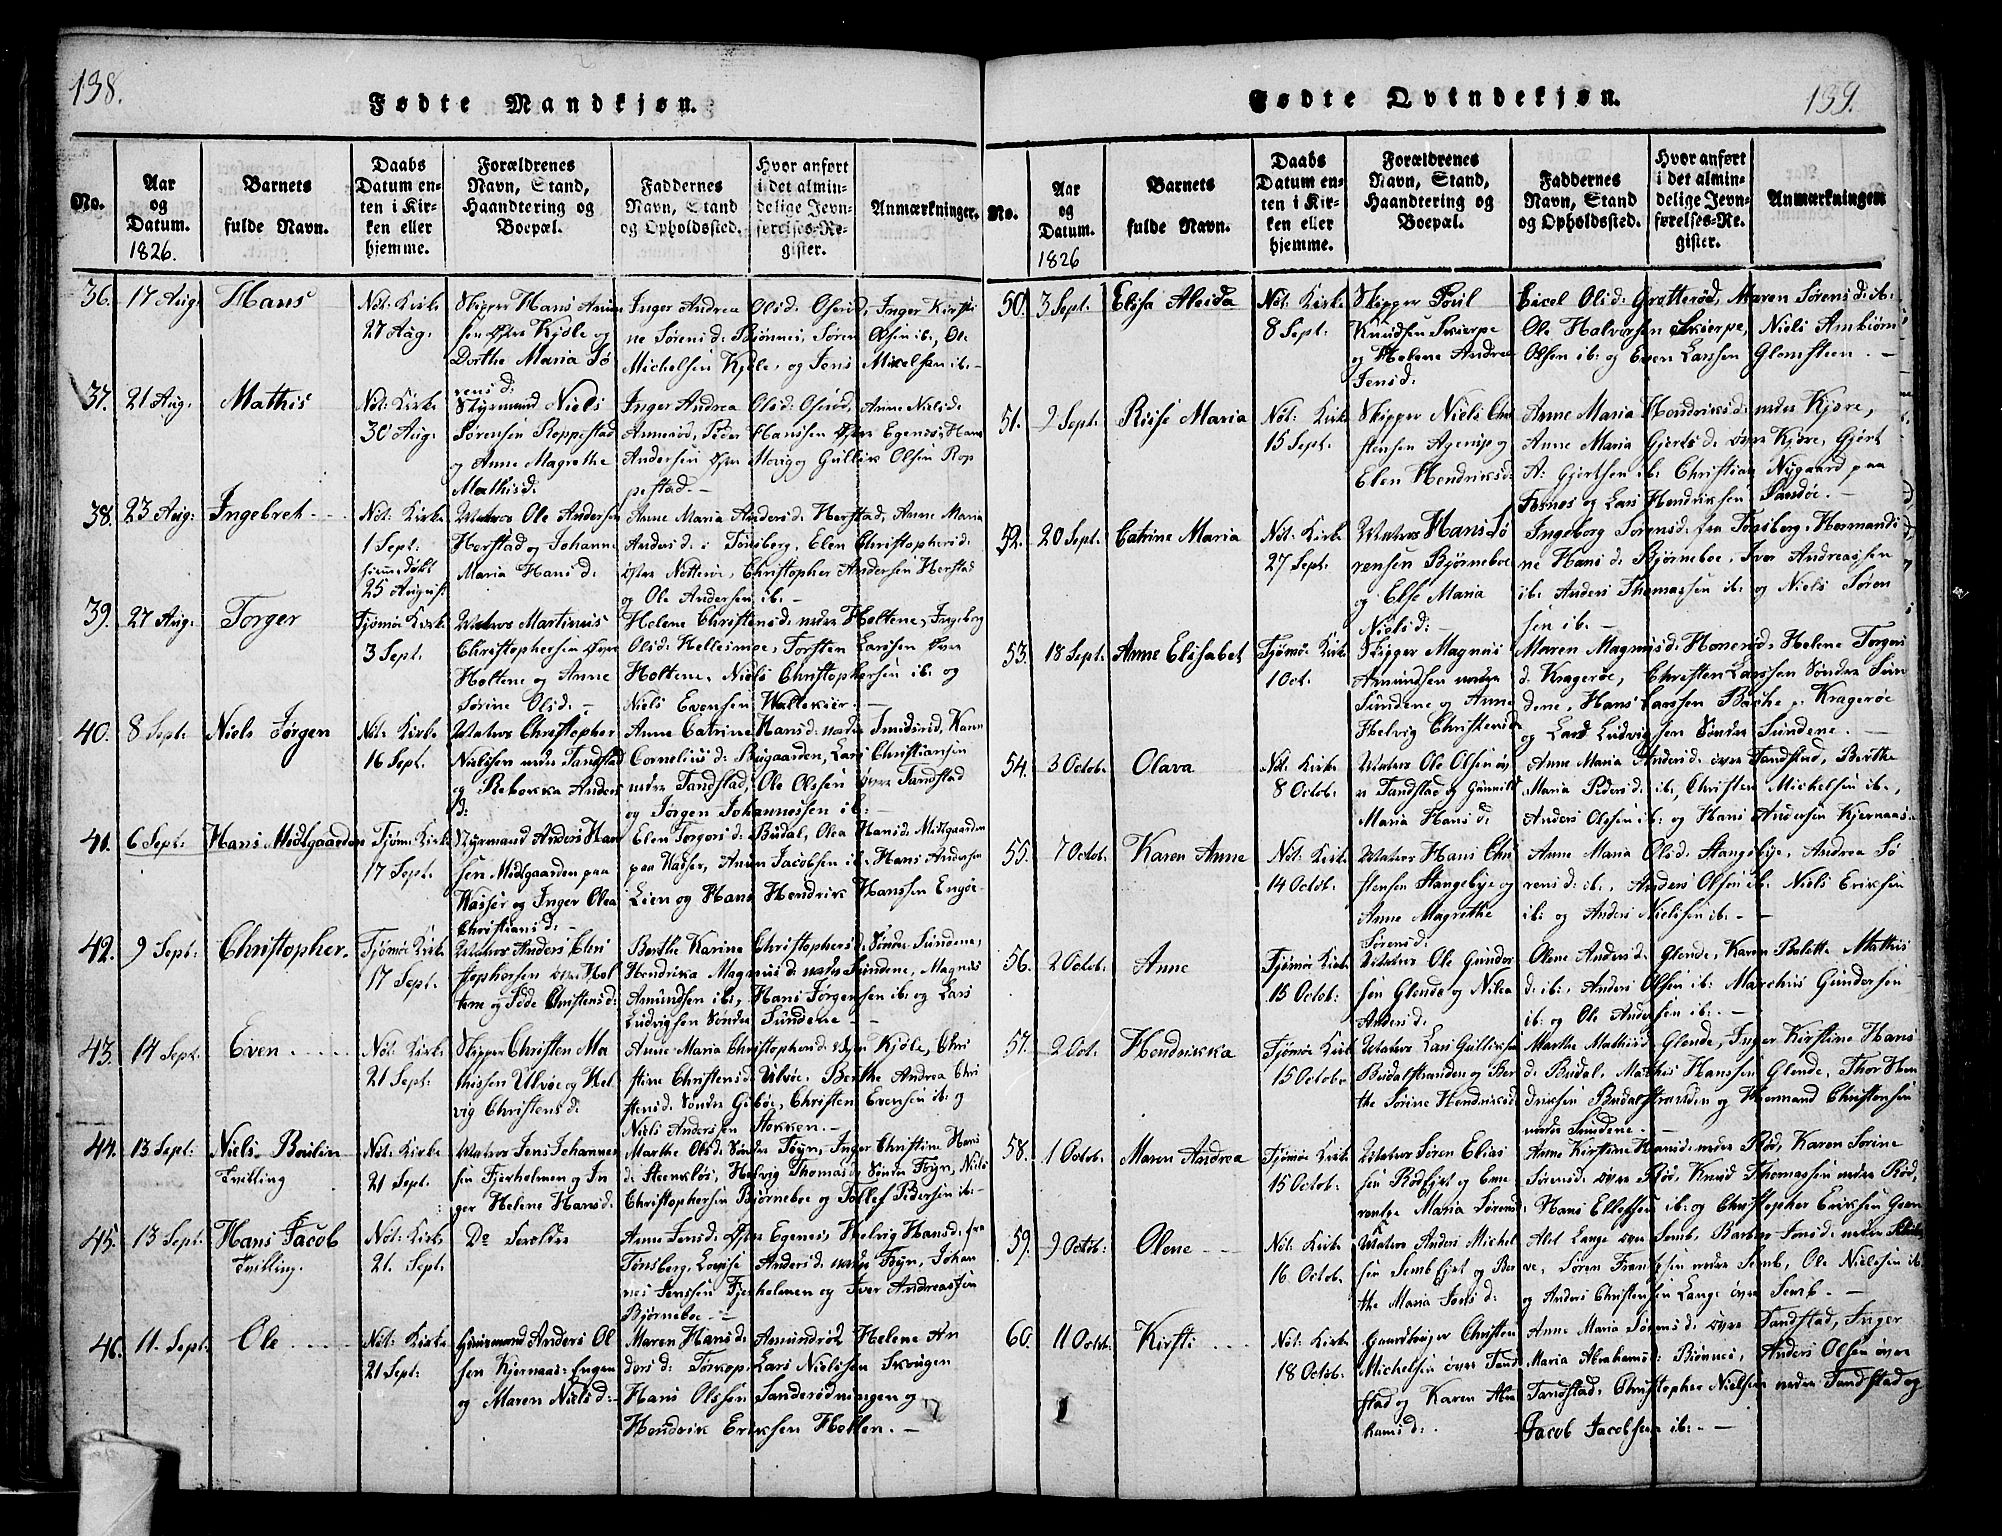 138.
Fødte Mandkjøn.
No.
Aar og Datum. 1826.
Barnets fulde Navn.
Daabs Datum enten i Kirken eller hjemme.
Forældrenes Navn, Stand, Haandtering og Boepæl.
Faddernes Navn, Stand og Opholdssted.
Hvor anført i det almindelige Jevnførelses-Register.
Anmærkninger.
36. 17 Aug: Hans
Nöt: Kirke
27 Aug.
Skipper Hans
Kjøle og
Dorthe Maria Sø
rensd:
Inger Andrea Olsd: Oserød, Inger Kirsti
ne Sørensd: Bjønnes, Søren Olsen ib:, Ole
Michelsen Kjøle, og Jens Mikelsen ib: –
37. 21 Aug: Mathis
Nöt: Kirke
30 Aug:
Styrmand Niels
Sørensen Roppestad
og Anne Magrethe
Mathisd:
Inger Andrea Olsd: Oserød, Anne Nielsd:
Annerød, Peder Hansen Østre Egenes, Hans
Andersen Østre og Gullik Olsen Rop
pestad. –
38. 23 Aug: Ingebret
Nöt: Kirke
1 Sept:
hjemmedøbt
25 August
Matros Ole Andersen
Herstad og Johanne
Maria Hansd:
Anne Maria Andersd: Herstad, Anne Maria
Andersd: i Tönsberg, Elen Christophersd:
Østre Nötterøe, Christopher Andersen Herstad
og Ole Andersen ib: –
39. 27 Aug: Torger
Tjömöe Kirke
3 Sept:
Matros Martinus
Christophersen Øvre
Holtene og Anne
Sørine Olsd: –
Helene Christensd: nedre Holtene, Ingeborg
Olsd: Hellesmoe, Torsten Larssen Øvre
Holtene, Niels Christophersen ib: og
Niels Evensen Wallekier. –
40. 8 Sept: Niels Jørgen
Nöt: Kirke
16 Sept:
Matros Christopher
Nielssen nedre Tandstad
og Rebekka Anders
d:
Anne Catrine Hansd: nedre Smidsrød, Karen
Corneliusd: Bugaarden, Lars Christiansen
nedre Tandstad, Ole Olssen øvre Tandstad
og Jørgen Johannessen ib: –
41. 6 Sept: Hans Midtgaarden
Tjöm: Kirke
17 Sept:
Styrmand Anders Han
sen Midtgaarden paa
Wasser og Inger Olea
Christiansd:
Elen Torgersd: Budal, Olea Hansd: Midtgaarden
paa Wasser, Jacobsen ib: Hans Andersen
Lien og Hans Hendrik Hanssen Engöe –
42. 9 Sept: Christopher.
Tjömöe Kirke
17 Sept:
Matros Anders Chri
stophersen øvre Hol
tene og Christensd:
Berthe Karine Christophersd: Søndre Sundene,
Hendrikka Magnusd: nedre Sundene, Magnus
Amundsen ib:, Hans Jørgensen ib: og Lars
Ludvigsen Søndre Sundene –
43. 14 Sept: Even
Nöt: Kirke
21 Sept:
Skipper Christen Ma
thissen Ulvøe og Hel
vig Christensd:
Anne Maria Christophersd: Kjøle, Chri
stine Christensd: Ulvøe, Berthe Andrea Chri
stensd: Søndre Gibøe, Christen Evensen ib: og
Niels Anderssen Stokken. –
44. 13 Sept: Niels Boulin
Tvilling
Nöt: Kirke
21 Sept:
Matros Jens Johannes
sen Fjerholmen og In
ger Helene Hansd:
Marthe Olsd: Søndre Föyn, Inger Christine Hans
d: Steenkløs, Helvig Thomasd: Søndre Föyn, Niels
Christophersen Bjørneboe og Tollef Pedersen ib: –
45. 13 Sept: Hans Jacob
Tvilling.
Nöt: Kirke
21. Sept:
Do Forældre
Anne Jensd: Østre Egenes, Helvig Hansd: fra
Tönsberg, Lovise Andersd: nedre Föyn, Johan
nes Jenssen Fjerholmen og Iver Andreassen
Bjørneboe. –
46. 11. Sept: Ole
Nöt: Kirke
21 Sept:
Huusmand Anders Ol
sen Kjernaas-Engen
og Maren Nielsd:
Maren Hansd: Amundrød, Helene An
dersd: Torkop, Lars Nielssen Skrugen
Hans Olssen Sanderødningen og
Hendrik Eriksen Hollen. –
139.
Fødte Qvindekjøn.
No.
Aar og Datum. 1826
Barnets fulde Navn.
Daabs Datum enten i Kirken eller hjemme.
Forældrenes Navn, Stand, Haandtering og Boepæl.
Faddernes Navn, Stand og Opholdssted.
Hvor anført i det almindelige Jevnførelses-Register.
Anmærkningen
50. 3 Sept: Elisa Aleida
Nöt: Kirke
8 Sept:
Skipper Poul
Knudsen Skierpe
og Helene Andrea
Jensd:
Sicel Olsd: Grotterød, Maren Sørensd: ib:
Ole Halvorsen Skierpe, Niels Ambiörn
Olsen ib: og Even Larssen Glomsteen. –
51. 2 Sept: Risse Maria
Nöt: Kirke
15 Sept:
Skipper Niels Chri
stensen Agerup og
Elen Hendriksd:
Anne Maria Hendriksd: nedre Kjøre,
Anne Maria Gjertsd: øvre Kjøre, Gjert
A: Gjertsen ib: Christian Nygaard paa
Føxnes og Lars Hendriksen Sandøe. –
52. 20 Sept: Catrine Maria
Nöt: Kirke
27 Sept:
Matros Hans Sø
rensen Bjørneboe
og Else Maria
Nielsd:
Ingeborg Sørensd: fra Tönsberg, Hermandi
ne Hansd: Bjørneboe, Iver Andreassen
ib: Anders Thomassen ib: og Niels Søren
sen ib: –
53. 18 Sept: Anne Elisabet
Tjömöe Kirke
1 Oct:
Skipper Magnus
Amundsen nedre
Sundene og Anne
Helvig Christensd:
Maren Magnusd: Honerød, Helene Torgers
d: Kragerøe, Christen Larssen Søndre Sun
dene, Hans Larssen Bache, Kragerøe
og Lars Ludvigsen Søndre Sundene. –
54. 3 Octob: Olava
Nöt: Kirke
8 Octob:
Matros Ole Olsen øv
re Tandstad og Gunnild
Maria Hansd:
Anne Maria Andersd: øvre Tandstad, Berthe
Maria Pedersd: ib:, Christen Michelsen ib:,
Anders Olssen ib: og Hans Andersen Kjernaas. –
55. 7 Octob: Karen Anne
Nöt: Kirke
14 Octob:
Matros Hans Chri
stensen Stangebye og
Anne Magrethe
Sörensd:
Anne Maria Olsd: Stangebye, Andrea Sø
rensd: ib:, Anders Olsen ib: Niels Eriksen
ib: og Anders Nielssen ib: –
56. 2 Octob: Anne
Tjömöe Kirke
15 Octob:
Matros Ole Gunder
sen Glende og Nilea
Andersd:
Olene Andersd: Glende, Karen Bolette Mathis
d: ib:, Anders Olsen ib: Mathis Gundersen
ib: og Ole Andersen ib: –
57. 2 Oct: Hendrikka
Tjömöe Kirke
15 Octob:
Matros Lars Gulliksen
Budalstranden og Ber
the Sørine Hendriksd:
Marthe Mathisd: Glende, Inger Kirstine Hans
d: Budal, Mathis Hanssen Glende, Thor Hen
driksen Budalstranden og Hermand Christensen
nedre Sundene. –
58. 1 Octob: Maren Andrea
Tjömöe Kirke
15 Octob:
Matros Søren Elias
sen Rödsfjert og Eme
rentze Maria Sørens
Anne Kirstine Hansd: nedre Röd, Karen Sørine
Sørensd: øvre Röd, Knud Thomassen nedre Röd,
Hans Ellefsen ib: og Christopher Eriksen
59. 9 Octob: Olene
Nöt: Kirke
16 Octob:
Matros Anders Michel
sen Sembfjert og Ber
the Maria Jensd:
Alet Lange øvre Semb, Barbra Jonsd: nedre
Søren Franssen nedre Semb, Ole Nielssen ib:
og Anders Christensen Lange øvre Semb. –
60. 11 Octob: Kirsti
Nöt: Kirke
18 Octob:
Gaardbruger Christen
Michelsen øvre Tand
stad og Karen Abra
hamsd:
Anne Maria Sørensd: øvre Tandstad, Inger
Maria Abrahamsd: Bjønnes, Anders Olsen øvre
Tandstad, Christopher Nielsen nedre Tandstad og
Jacob Jacobsen ib: –